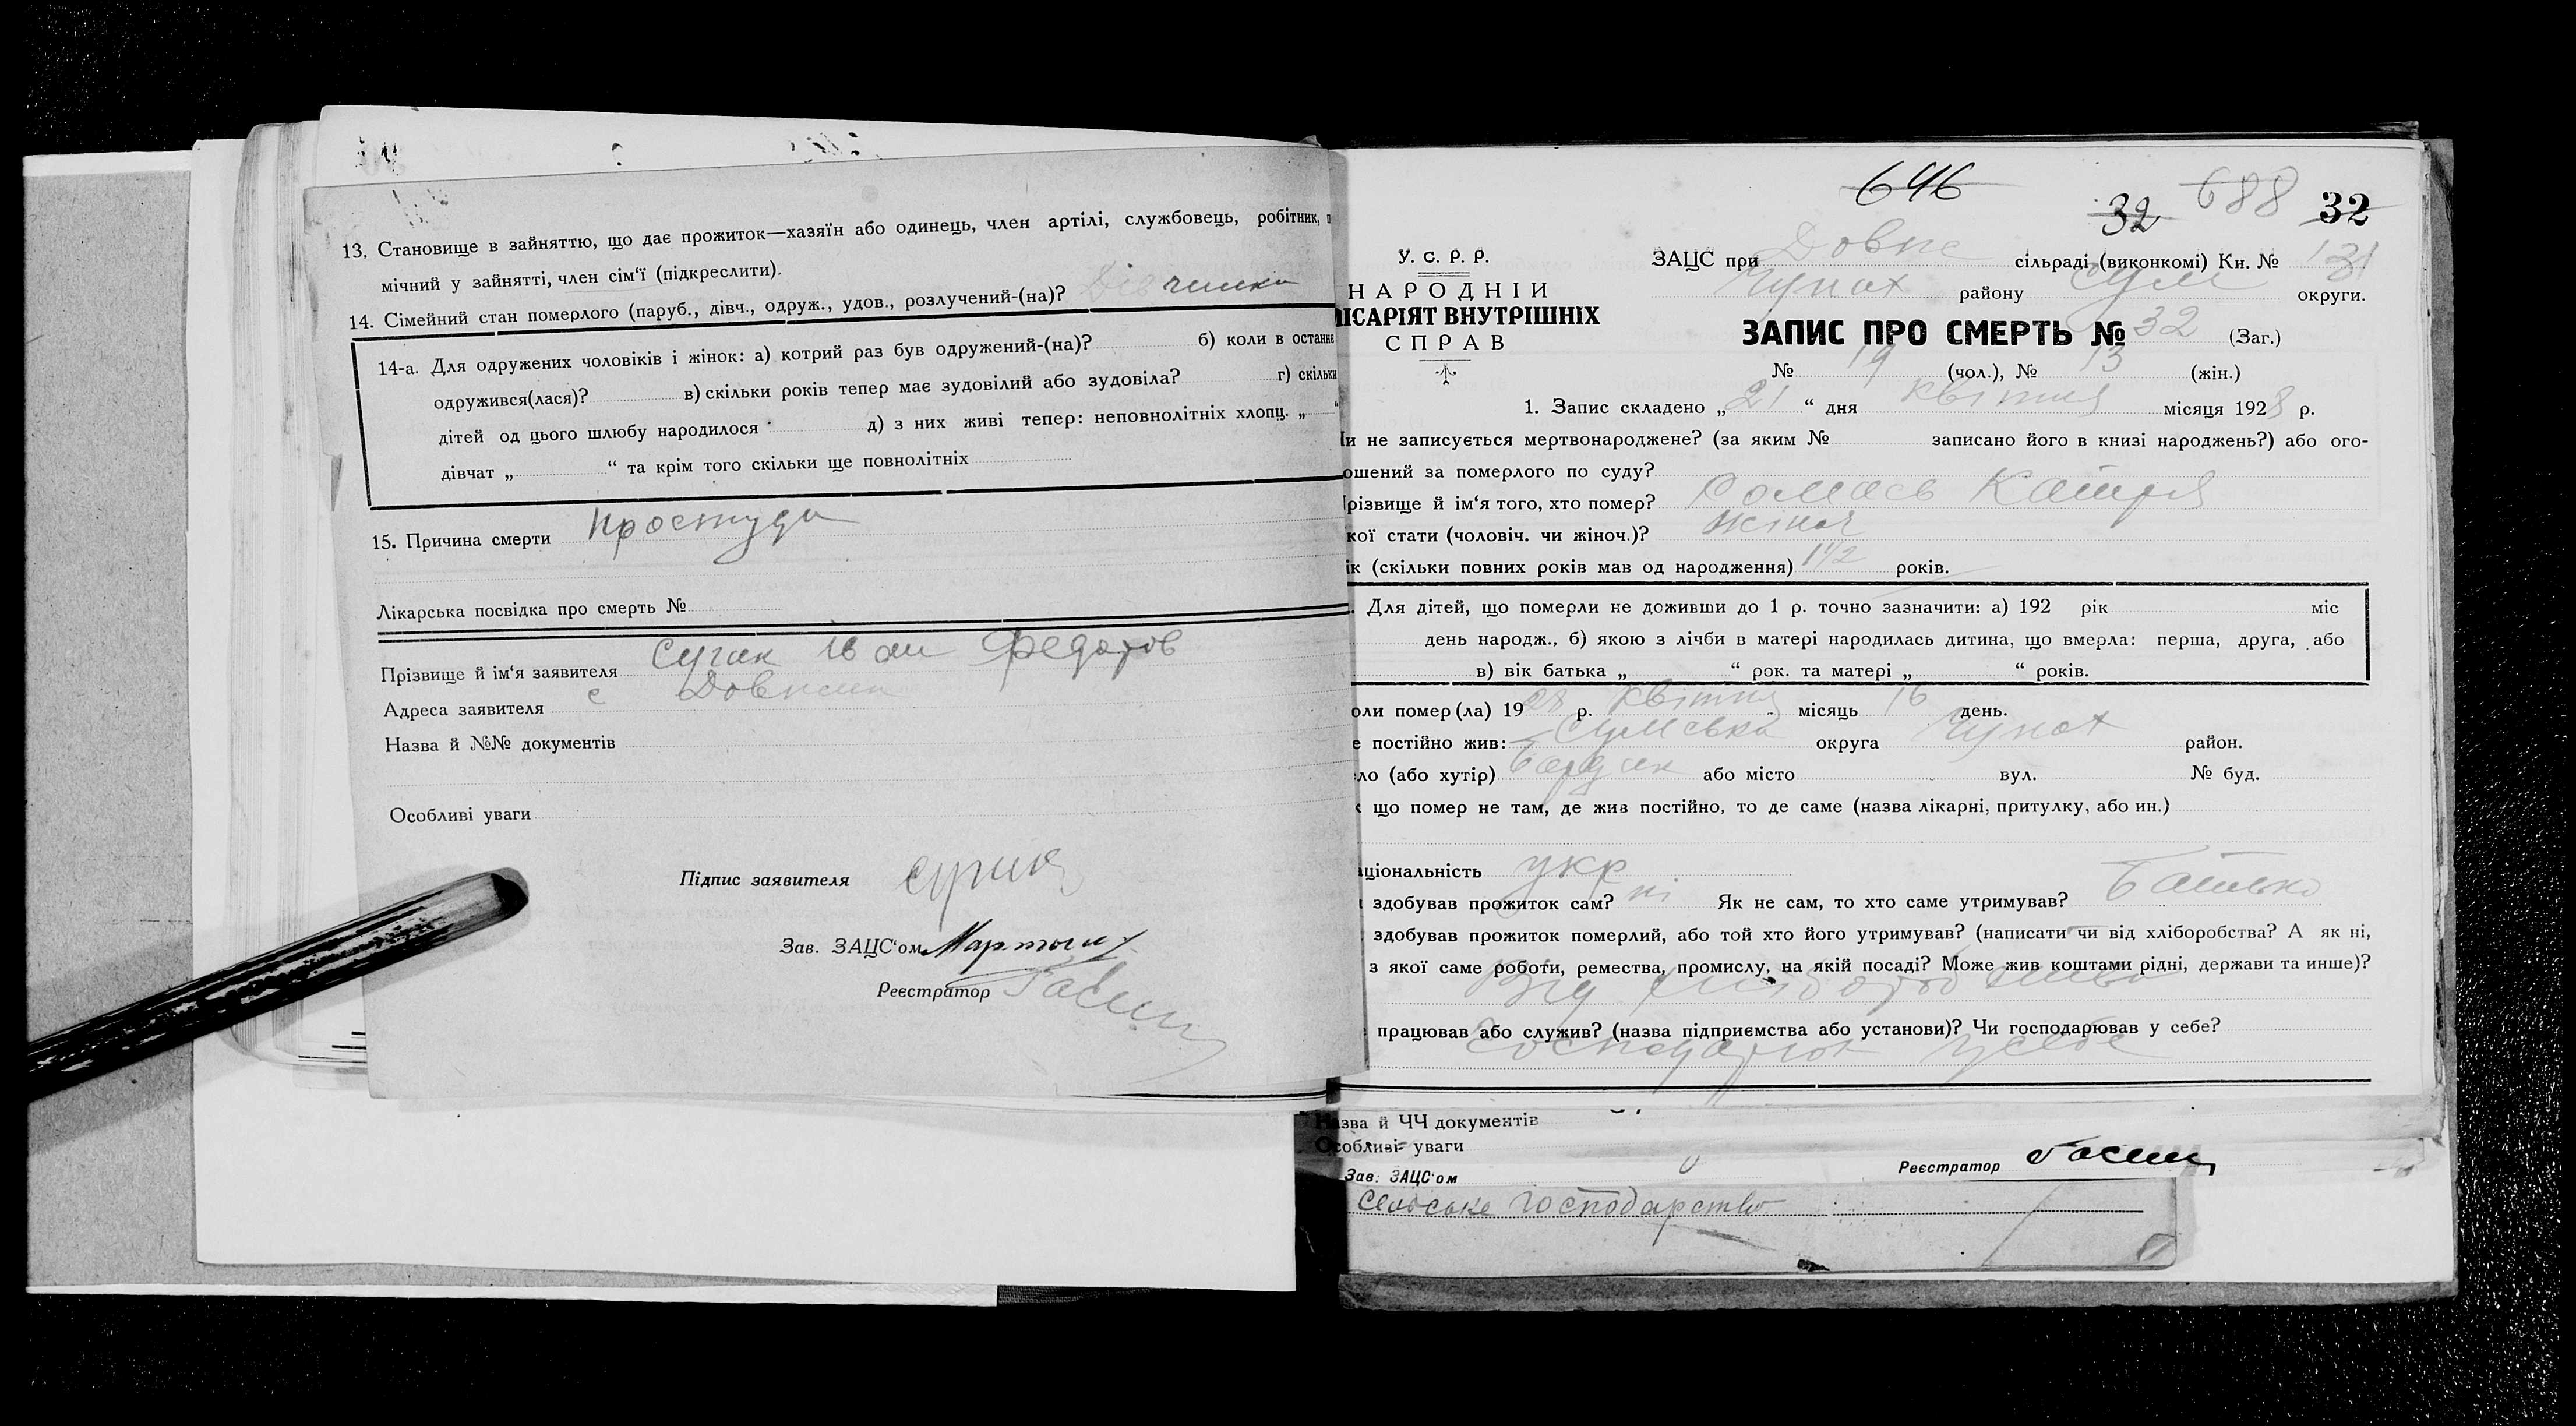 13. Становище в зайняттю, що дає прожиток—хазяїн або одинець, член артілі, службовець, робітник, п
мічний у зайнятті, член сім'ї (підкреслити).
14. Сімейний стан померлого (паруб., дівч., одруж., удов., розлучений-(на)?
14-а. Для одружених чоловіків і жінок: а) котрий раз був одружений-(на)? б) коли в останнє
одружився(лася)? в) скільки років тепер має зудовілий або зудовіла? г) скільки
дітей од цього шлюбу народилося д) з них живі тепер: неповнолітніх хлопц. „ “
дівчат „ “ та крім того скільки ще повнолітніх
15. Причина смерти простуда
Лікарська посвідка про смерть №
Прізвище й ім'я заявителя Сугак Іван Федотов
Адреса заявителя с
Назва й №№ документів
Особливі уваги
Підпис заявителя
Зав. ЗАЦС'ом
Реєстратор
646
32 688 32
У. С. Р. Р.
НАРОДНІЙ
ІСАРІЯТ ВНУТРІШНІХ
СПРАВ
ЗАЦС при сільраді (виконкомі) Кн. № 131
району Сум округи.
ЗАПИС ПРО СМЕРТЬ № 32 (Заг.)
№ 19 (чол.), № 13 (жін.)
1. Запис складено „21“ дня квітня місяця 1928 р.
и не записується мертвонароджене? (за яким № записано його в книзі народжень?) або ого-
ошений за померлого по суду?
різвище й ім'я того, хто помер? Сомась Катря
кої стати (чоловіч. чи жіноч.)? жіноч
ік (скільки повних років мав од народження) 1 1/2 років.
. Для дітей, що померли не доживши до 1 р. точно зазначити: а) 192 рік міс
день народж., б) якою з лічби в матері народилась дитина, що вмерла: перша, друга, або
в) вік батька „ “ рок. та матері „ “ років.
оли помер(ла) 1928 р. квітня місяць 16 день.
е постійно жив: Сумська округа район.
ло (або хутір) або місто вул. № буд.
що помер не там, де жив постійно, то де саме (назва лікарні, притулку, або ин.)
ціональність укр
здобував прожиток сам? ні Як не сам, то хто саме утримував? Батько
здобував прожиток померлий, або той хто його утримував? (написати чи від хліборобства? А як ні,
з якої саме роботи, ремества, промислу, на якій посаді? Може жив коштами рідні, держави та инше)?
Від хліборобства
працював або служив? (назва підприємства або установи)? Чи господарював у себе?
у себе
Назва й ЧЧ документів
Особливі уваги
Зав. ЗАЦС'ом Реєстратор
Сільське господарство